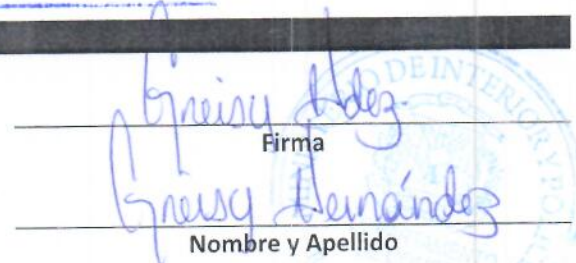 Greisy Hdez.
Firma
Greisy Hernández
Nombre y Apellido
DE INTERIOR Y PO